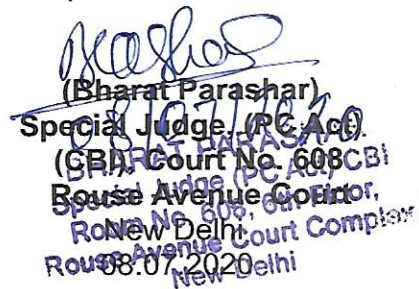 (Bharat Parashar)
08/07/2020
Special Judge, (PC Act)
(CBI), Court No. 608
Rouse Avenue Court
New Delhi.
08.07.2020
BHARAT PARASHAR
Special Judge (PC Act) CBI
Room No. 608, 6th Floor,
Rouse Avenue Court Complex
New Delhi